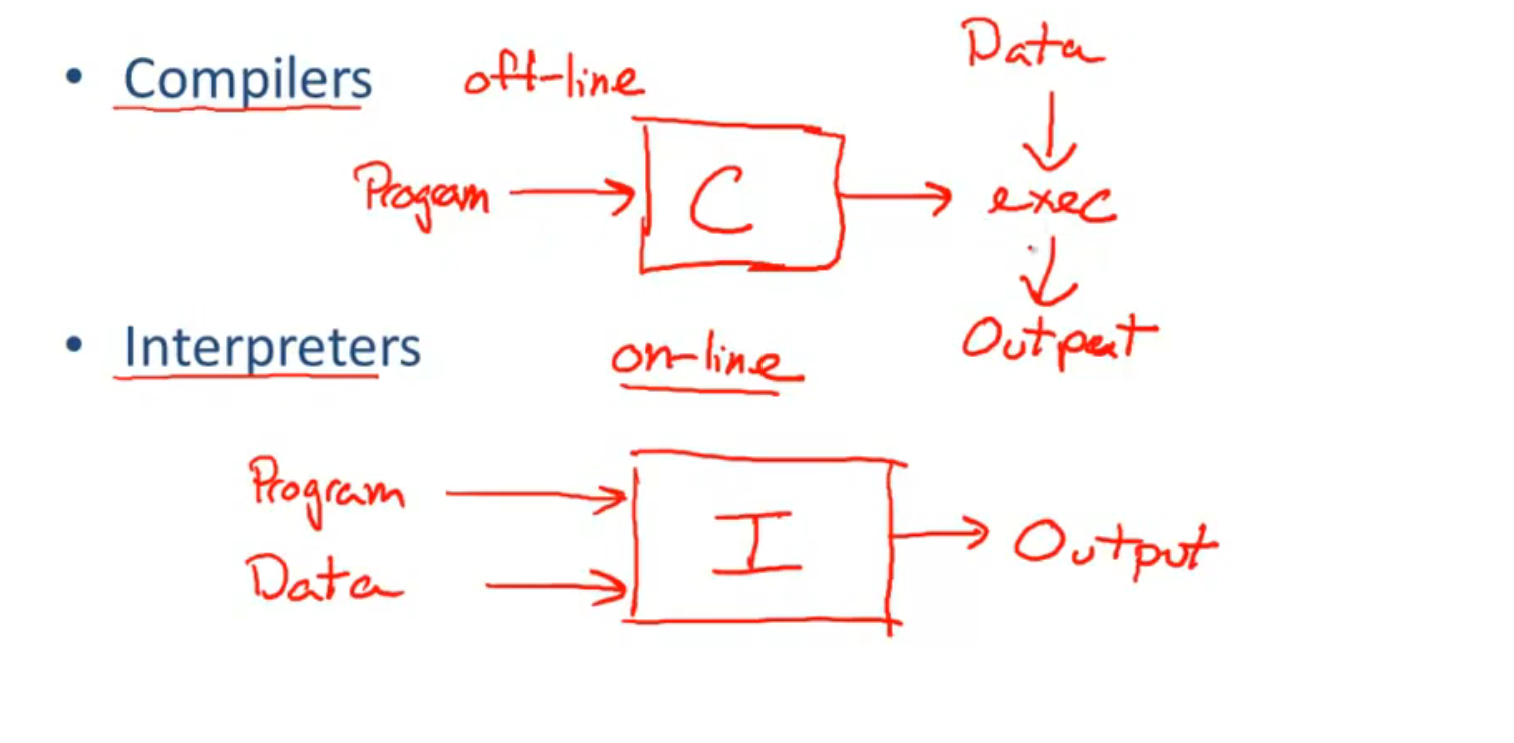 • Compilers off-line Data
Program C exec
Output
• Interpreters on-line
Program I Output
Data